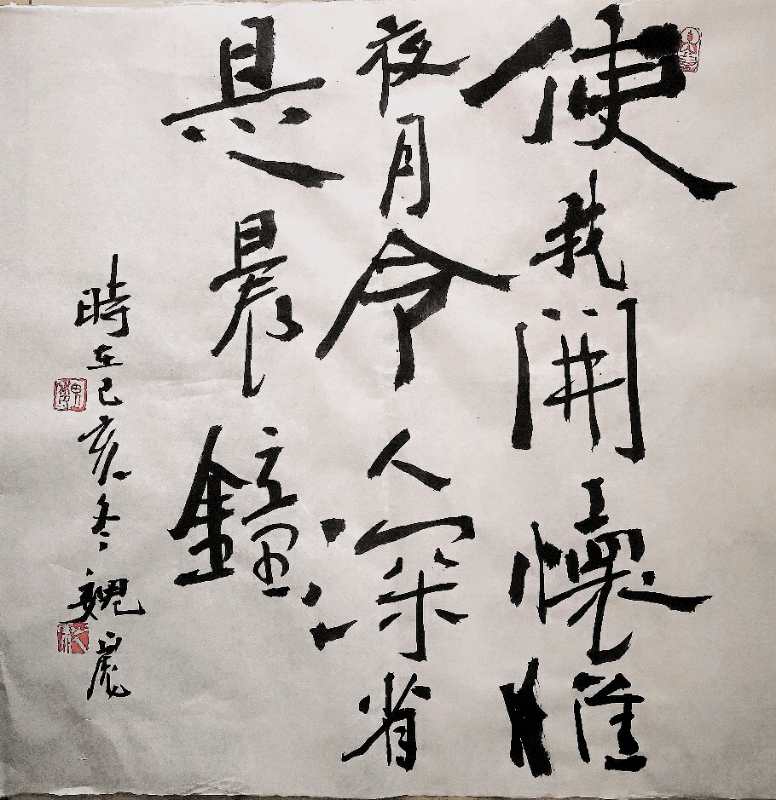 使我開懷惟
夜月令人深省
是晨鐘
時在己亥冬魏